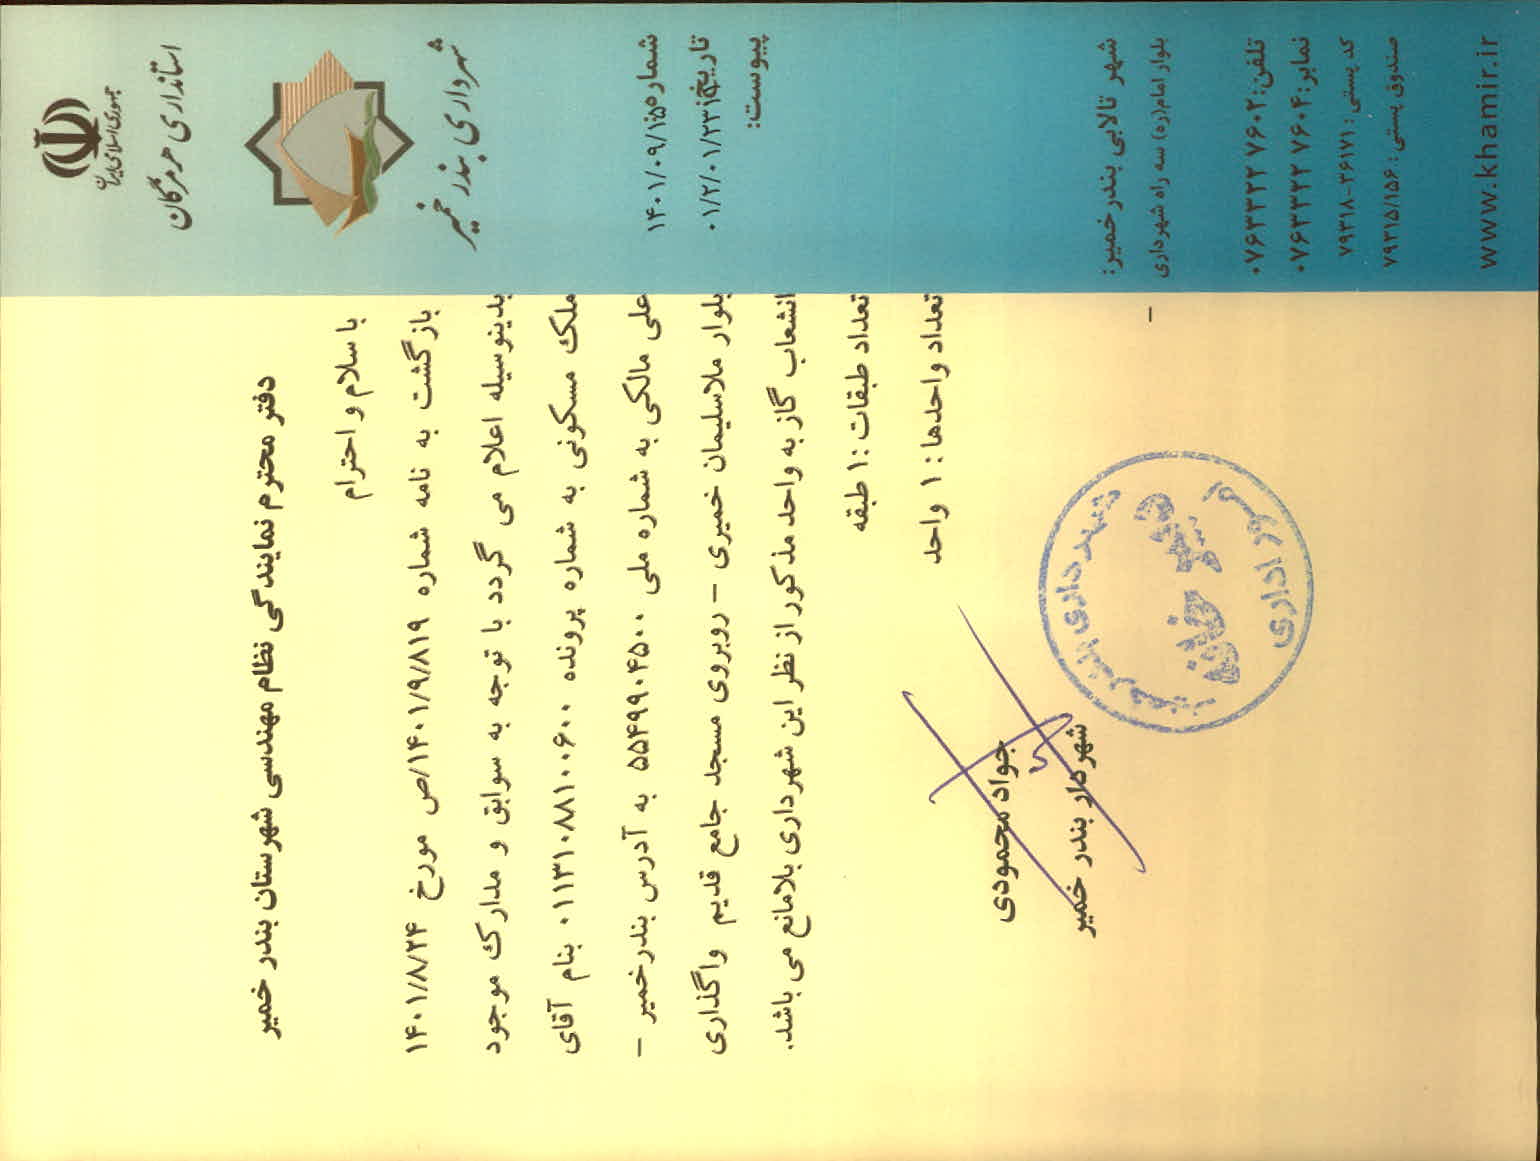 جمهوری اسلامی ایران
استانداری هرمزگان
شهرداری بندر خمیر
شماره:
۱۴۰۱/۰۹/۱۵
تاریخ:
پیوست:
دفتر محترم نمایندگی نظام مهندسی شهرستان بندر خمیر
با سلام و احترام
بازگشت به نامه شماره ۱۴۰۱/۹/۸۱۹/ص مورخ ۱۴۰۱/۸/۲۴
بدینوسیله اعلام می گردد با توجه به سوابق و مدارک موجود
ملک مسکونی به شماره پرونده ۰۱۱۳۱۰۸۸۱۰۰۶۰۰ بنام آقای
علی مالکی به شماره ملی ۵۵۴۹۹۰۴۵۰۰ به آدرس بندرخمیر –
بلوار ملاسلیمان خمیری – روبروی مسجد جامع قدیم واگذاری
انشعاب گاز به واحد مذکور از نظر این شهرداری بلامانع می باشد.
تعداد طبقات :۱ طبقه
تعداد واحدها : ۱ واحد
جواد محمودی
شهردار بندر خمیر
شهرداری بندر خمیر
دبیرخانه
امور اداری
شهر تالابی بندر خمیر:
بلوار امام(ره) سه راه شهرداری
تلفن: ۰۷۶۳۳۲۲ ۷۶۰۲
نمابر: ۰۷۶۳۳۲۲ ۷۶۰۴
کد پستی: ۷۹۳۱۸-۳۶۱۷۱
صندوق پستی: ۷۹۳۱۵/۱۵۶
www.khamir.ir